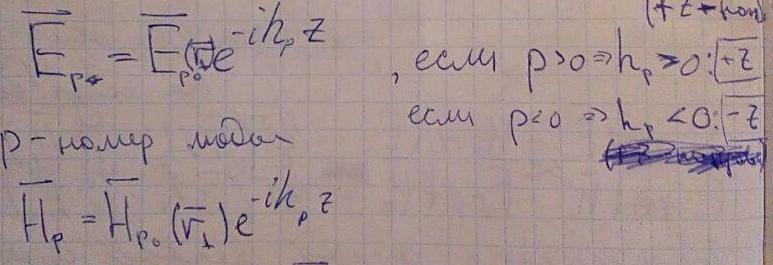 (+z напр
E⃗ₚ = E⃗ₚ₀(r⃗)e^{-ihₚz} , если p>0 ⇒ hₚ>0: +z
если p<0 ⇒ hₚ<0: -z
p - номер моды
H̅ₚ = H̅ₚ₀(r̅⊥)e^{-ihₚz}